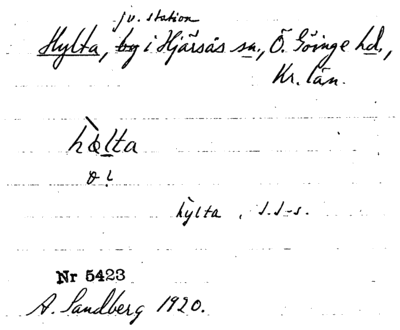 jv. station
Hylta, by i Hjärsås sn., Ö. Göinge hd.,
Kr. län.
hælta
hylta, s.s-s.
Nr 5423
A. Sandberg 1920.